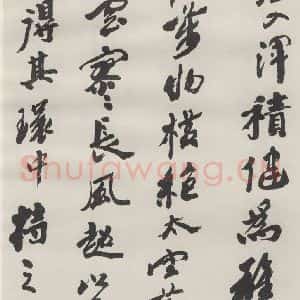 入渾積健為雄
萬物橫絕太空荒
雲寥々長風超以
得其環中持之
Shufawang.cn